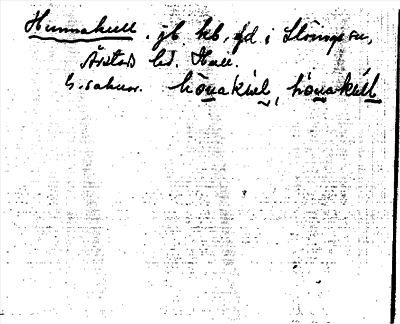 Hunnakull. jb. kb. fd. i Slöinge sn,
Årstads hd. Hall.
G. saknas. hònakùl, hònakùll